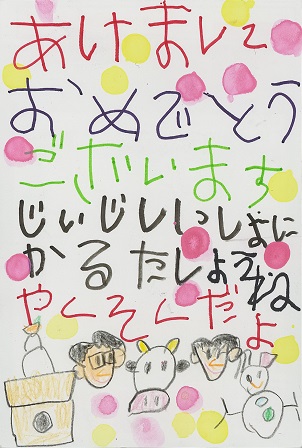 あけまして
おめでとう
ございます
じいじいしにしょに
かるたしようね
やくそくだよ